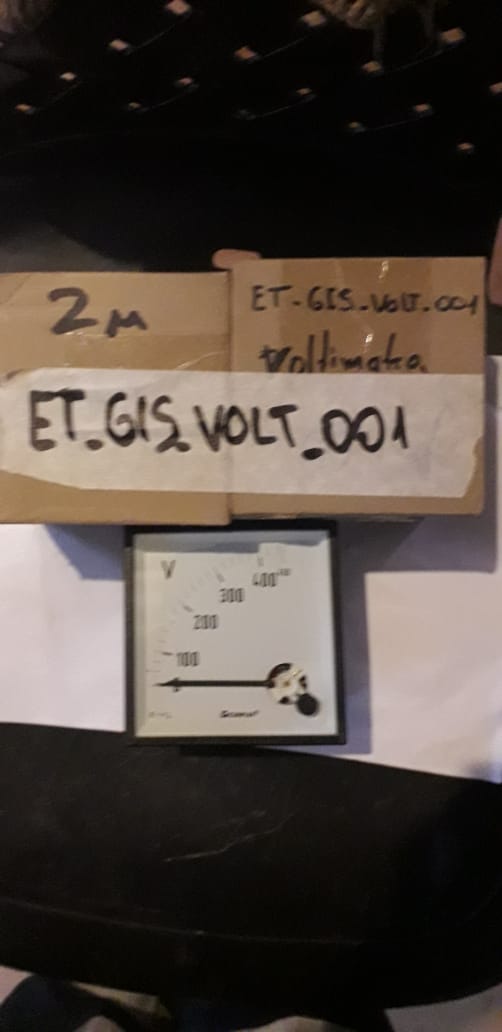 2M
ET-GIS-VOLT.001
Voltimetro
ET.GIS.VOLT.001
V
400
300
200
100
0